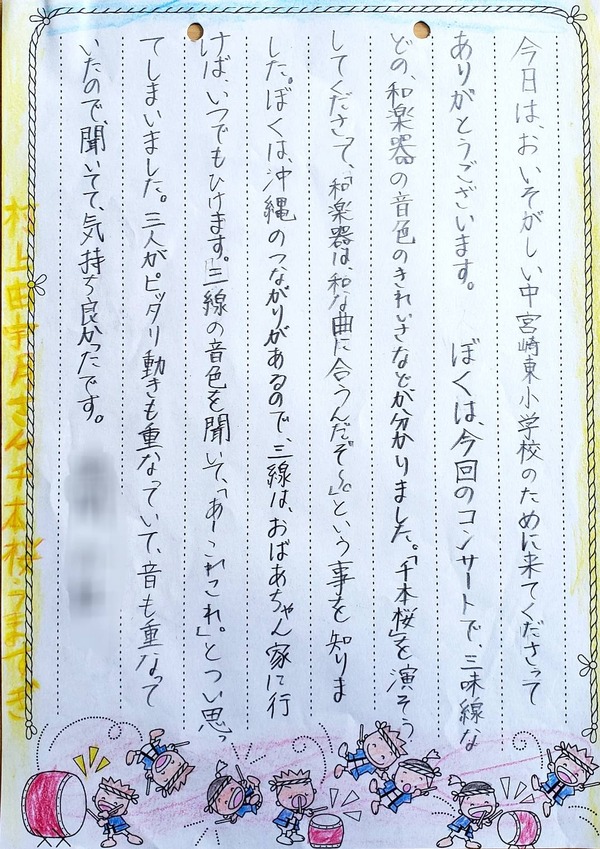 今日は、おいそがしい中宮崎東小学校のために来てくださって
ありがとうございます。　ぼくは、今回のコンサートで、三味線な
どの、和楽器の音色のきれいさなどが分かりました。「千本桜」を演そう
してくださって、「和楽器は、和な曲に合うんだぞ～。」という事を知りま
した。ぼくは、沖縄のつながりがあるので、三線は、おばあちゃん家に行
けば、いつでもひけます。三線の音色を聞いて、「あーこれこれ。」とつい思っ
てしまいました。三人がピッタリ動きも重なっていて、音も重なって
いたので、聞いてて、気持ち良かったです。
村上由宇月さん千本桜うますぎ